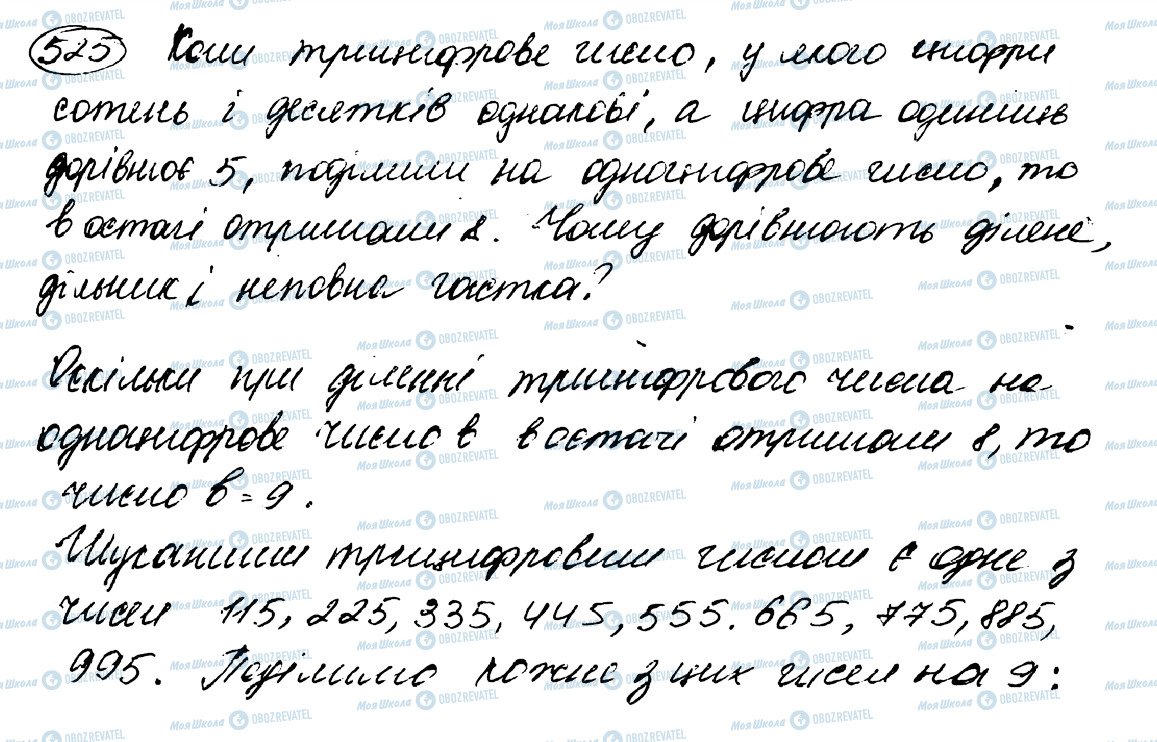 525 Коли трицифрове число, у якого цифри
сотень і десятків однакові, а цифра одиниць
дорівнює 5, поділили на одноцифрове число, то
в остачі отримали 8. Чому дорівнюють ділене,
дільник і неповна частка?
Оскільки при діленні трицифрового числа на
одноцифрове число в в остачі отримали 8, то
число в = 9.
Шуканим трицифровим числом є одне з
чисел 115, 225, 335, 445, 555. 665, 775, 885,
995. Поділимо кожне з цих чисел на 9: